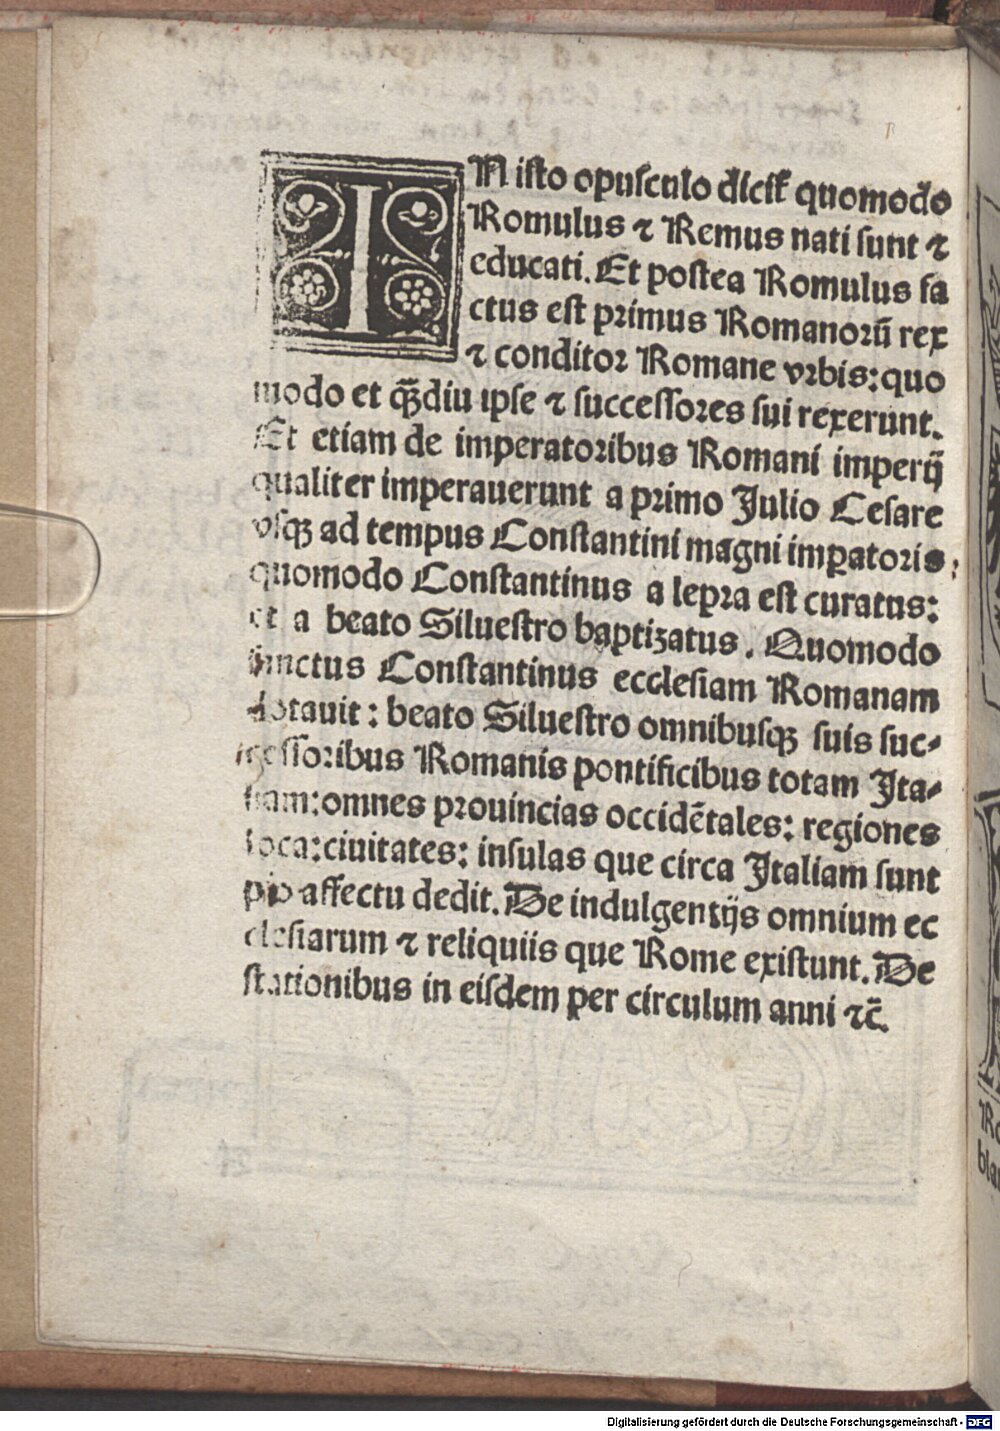 IN isto opusculo dicit̃ quomodo
Romulus ⁊ Remus nati sunt ⁊
educati. Et postea Romulus fa
ctus est primus Romanorũ rex
⁊ conditor Romane vrbis: quo
modo et q̃diu ipse ⁊ successores sui rexerunt.
Et etiam de imperatoribus Romani imperij
qualiter imperauerunt a primo Julio Cesare
vsqꝫ ad tempus Constantini magni imꝑatoris:
quomodo Constantinus a lepra est curatus:
et a beato Siluestro baptizatus. Quomodo
Constantinus ecclesiam Romanam
dotauit: beato Siluestro omnibusqꝫ suis suc-
cessoribus Romanis pontificibus totam Ita-
liam: omnes prouincias occidẽtales: regiones
loca: ciuitates: insulas que circa Italiam sunt
pio affectu dedit. De indulgentijs omnium ec
clesiarum ⁊ reliquiis que Rome existunt. De
stationibus in eisdem per circulum anni ⁊c̃.
Digitalisierung gefördert durch die Deutsche Forschungsgemeinschaft - DFG